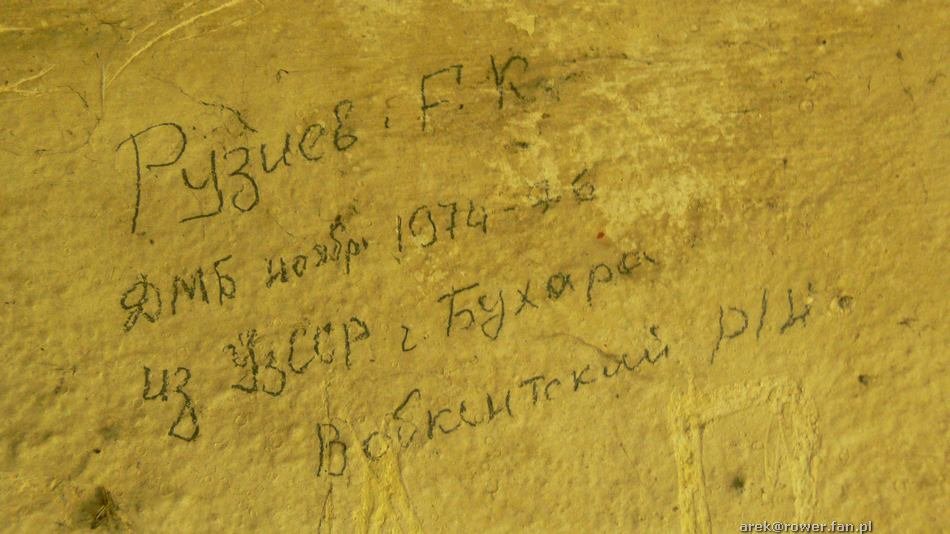 Рузиев. Г. К.
ДМБ ноябрь 1974-76
из УзССР г. Бухара
Вобкентский р/н.
arek@rower.fan.pl